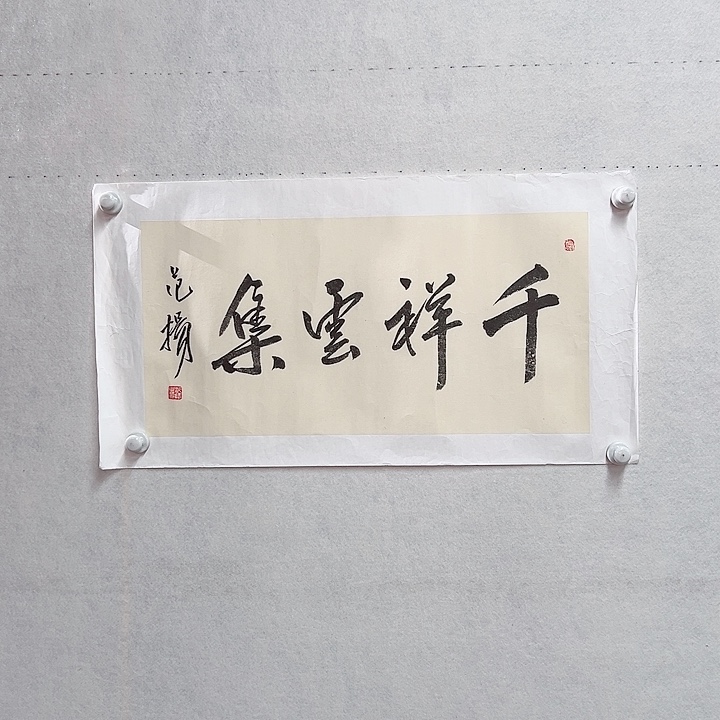 千祥雲集
范揚